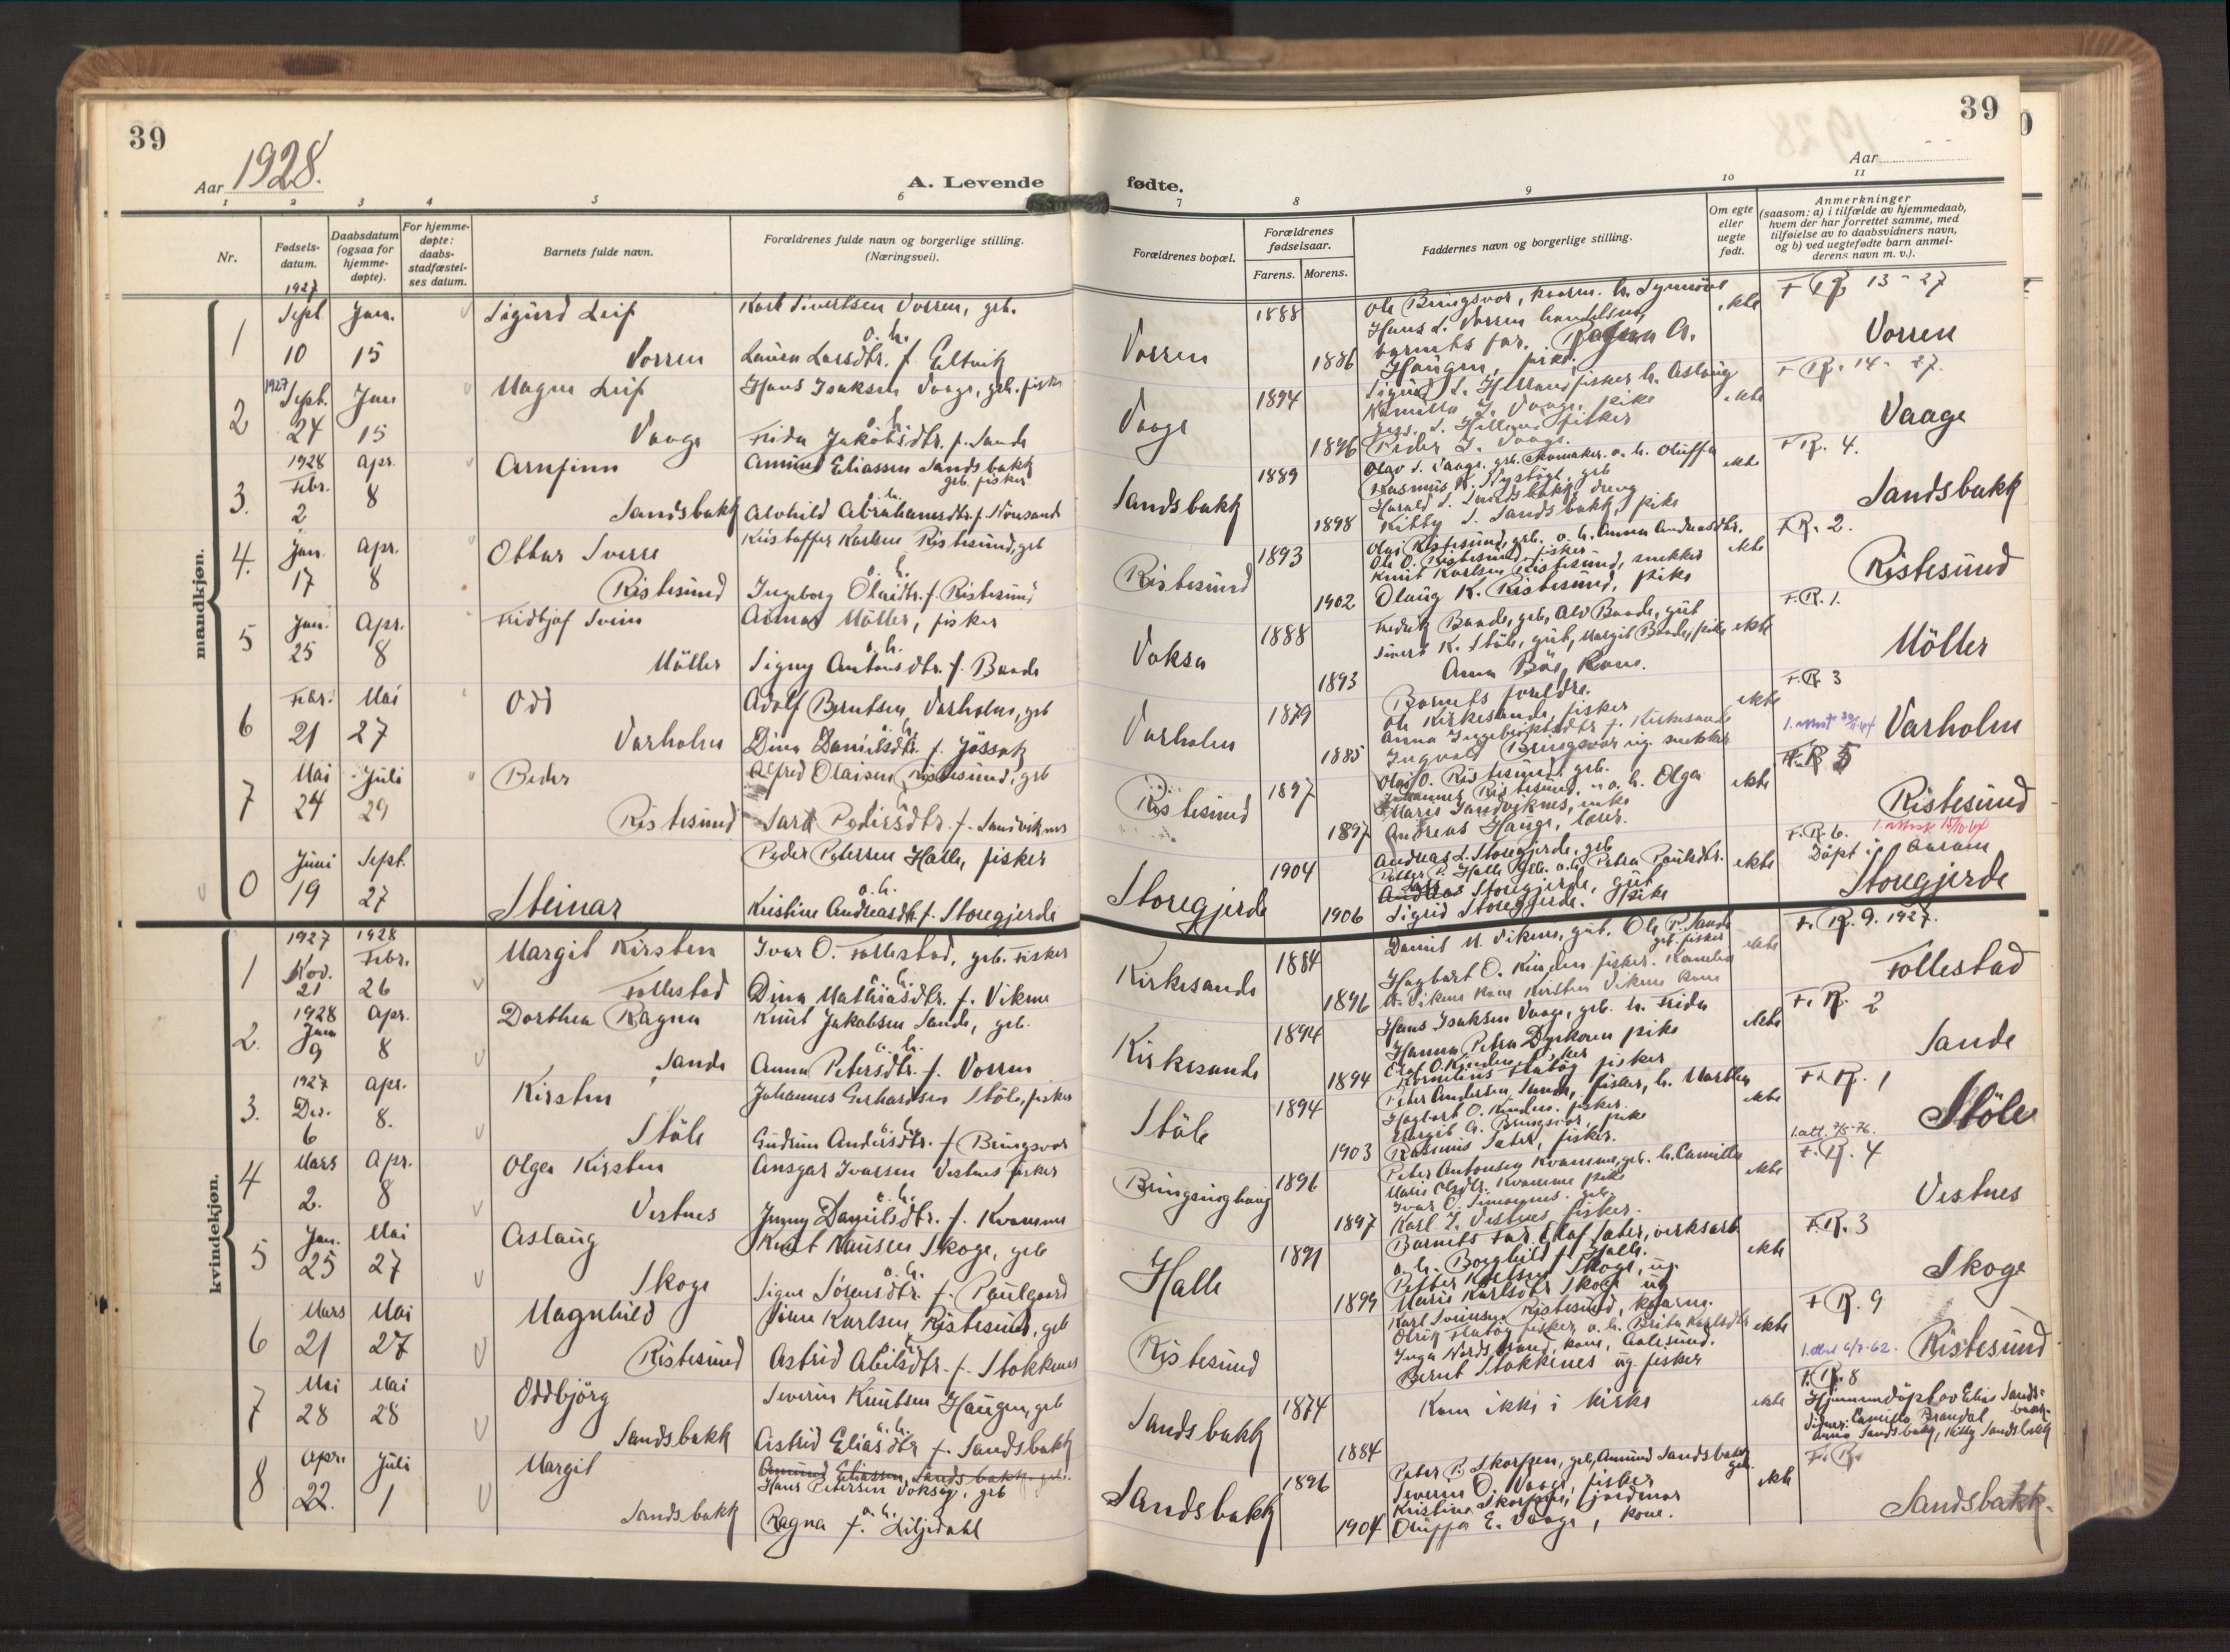 39
Aar 1928.
A. Levende
1 2 3 4 5 6
Nr.
Fødsels-
datum.
Daabsdatum
(ogsaa for
hjemme-
døpte).
For hjemme-
døpte:
daabs-
stadfæstel-
ses datum.
Barnets fulde navn.
Forældrenes fulde navn og borgerlige stilling.
(Næringsvei).
mandkjøn.
1927
1 Sept 10 Jan. 15
Sigurd Leif
Vorren
Karl Sivertsen Vorren, grb.
o. h.
Laura Larsdtr. f. Eltvik
2 1927 Sept. 24 Jan 15
Magne Leif
Vaage
Hans Isaksen Vaage, grb. fisker
o. h.
Frida Jakobsdtr. f. Sande
3. 1928 Febr. 2 Apr. 8
Arnfinn
Sandsbakk
Amund Eliassen Sandsbakk
grb. fisker
o. h.
Alvhild Abrahamsdtr. f.
4. Jan. 17 Apr. 8
Ottar Sverre
Ristesund
Kristoffer Karlsen Ristesund, grb
o. h.
Ingeborg Olaidtr. f. Ristesund
5 Jan. 25 Apr. 8
Fridtjof Svein
Möller
Möller, fisker
o. h.
Signy Antonsdtr. f. Baade
6 Febr. 21 Mai 27
Odd
Varholm
Adolf Berntsen Varholm, grb
o. h.
Dina Danielsdtr. f. Jössok
7 Mai 24 Juli 29
Peder
Ristesund
Alfred Olaisen Ristesund, grb
Sara Pedersdtr. f. Sandviknes
0 Juni 19 Sept. 27
Steinar
Peder Petersen Halle, fisker
o. h.
Kristine Andreasdtr. f. Storegjerde
kvindekjøn.
1 1927 Nov. 21 1928 Febr. 26
Margit Kirsten
Follestad
Ivar O. Follestad, grb. fisker
o. h.
Dina Mathiasdtr. f. Vikene
2. 1928 Jan 9 Apr. 8
Dorthea Ragna
Sande
Knut Jakobsen Sande, grb.
o. h.
Anna Petersdtr. f. Vorren
3. 1927 Des. 6 Apr. 8.
Kirsten
Støle
Johannes Gerhardsen Støle, fisker
o. h.
Gudrun Andersdtr. f. Bringsvor
4 Mars 2. Apr. 8
Olga Kirsten
Vestnes
Ansgar Ivarsen Vestnes fisker
o. h.
Jenny Danielsdtr. f. Kvamme
5 Jan. 25 Mai 27
Aslaug
Skoge
Knut Knutsen Skoge, grb
o. h.
Signe Sørensdtr. f. Paulgard
6 Mars 21 Mai 27
Magnhild
Ristesund
Karlsen Ristesund, grb
Astrid Abelsdtr. f. Stokknes
7 Mai 28 Mai 28
Oddbjörg
Sandsbakk
Severin Knutsen Haugen, grb
o. h.
Astrid Eliasdtr f. Sandsbakk
8 Apr. 22. Juli 1
Margit
Sandsbakk
Amund Eliassen Sandsbakk grb.
Hans Petersen Voksøy, grb
o. h.
Ragna f. Liljedahl
39
Aar
fødte.
7 8 9 10 11
Forældrenes bopæl.
Forældrenes
fødselsaar.
Farens. Morens.
Faddernes navn og borgerlige stilling.
Om egte
eller
uegte
født.
Anmerkninger
(saasom: a) i tilfælde av hjemmedaab,
hvem der har forrettet samme, med
tilføielse av to daabsvidners navn,
og b) ved uegtefødte barn anmel-
derens navn m. v.).
Vorren
1888 1886
Ole Bringsvor, h. Synnöve
Hans L. Vorren handelsm,
barnets far. Ragna A.
Haugen, pike.
ekte
F. R. 13 - 27
Vorren
Vaage
1894 1896
Sigurd L. fisker h. Aslaug
Kamilla J. Vaage, pike
fisker
Peder J. Vaage.
ekte
F. R. 14 - 27.
Vaage
Sandsbakk
1889 1898
Olav S. Vaage. grb. Skomaker. o. h. Oluffa
Rasmus K. grb
Harald S. Sandsbakk, dreng
Kitty S. Sandsbakk, pike
ekte
F. R. 4.
Sandsbakk
Ristesund
1893 1902
Olai Ristesund, grb. o. h. Anna Andreasdtr.
Ole O. Ristesund, fisker
Knut Karlsen Ristesund, snekker
Olaug K. Ristesund, pike
ekte
F. R. 2.
Ristesund
Voksa
1888 1893
Fredrik Baade, grb, Alv Baade, gut
Sivert K. Støle, gut, Margit Baade, pike
Anna Bøe, Kone.
ekte
F. R. 1.
Möller
Varholm
1879 1885
Barnets foreldre.
Ole Kirkesande, fisker
Anna f. Kirkesande
Ingvald Bringsvor ug. snekker
ekte
F. R. 3
Varholm
Ristesund
1897 1897
Olai O. Ristesund, grb.
Johannes Ristesund, o. h. Olga
Marie Sandviknes, enke
Andreas Hauge, lærer.
ekte
F. R. 5
Ristesund
Storegjerde
1904 1906
Andreas L. Storegjerde, grb
Petter P. Halle grb. o. h. Petra Paulsdtr.
Andreas Storegjerde, gut
Sigrid Storegjerde. Pike
ekte
F. R. 6.
Döpt i Aaram
Storegjerde
Kirkesande
1884 1896
Daniel M. Vikene, gut. Ole P. Sande
grb. fisker
Hagbart O. Kinden fisker.
Vikene kone Kirsten Vikene kone
ekte
F. R. 9. 1927.
Follestad
Kirkesande
1894 1894
Hans Isaksen Vaage, grb. h. Frida
Hanna Petra pike
Olaf O. Kinden fisker
Kornelius fisker
ekte
F. R. 2
Sande
Støle
1894 1903
Peter Andersen Sande, fisker, h. Marthe
Hagbart O. Kinden. fisker.
Margit A. Bringsvor, pike
Rasmus Sæter, fisker.
ekte
F. R. 1
Støle
1896 1897
Peter Antonsen Kvamme, grb. h. Camilla
Marie Olsdtr. Kvamme pike
Ivar O. grb.
Karl I. Vestnes fisker.
ekte
1.att. 7/5-76.
F. R. 4
Vestnes
Halle
1891 1899
Barnets far. Olaf Sæter, verksarb.
o. h. Borghild f. Halle.
Petter Karlsen Skoge, ug.
Marie Karlsdtr Skoge ug
ekte
F. R. 3
Skoge
Ristesund
Karl Sveinsen Ristesund,
fisker, o. h. Berita Karlsdtr
Inga Nordstrand, kone, Aalesund.
Bernt Stokknes ug. fisker
ekte
F. R. 9
1.attest 6/7-62.
Ristesund
Sandsbakk
1874 1884
Kom ikke i kirke
ekte
F. R. 8
Hjemmedöpt av Elias Sands-
bakk.
Vidner: Camilla Brandal
Anna Sandsbakk, Kitty Sandsbakk
Sandsbakk
1896 1904
Peter P. Skorpen, grb, Amund Sandsbakk
grb.
Severin O. Vaage, fisker
Kristine Skorpen, jordmor
Oluffa E. Vaage, kone.
ekte
F. R.
Sandsbakk.